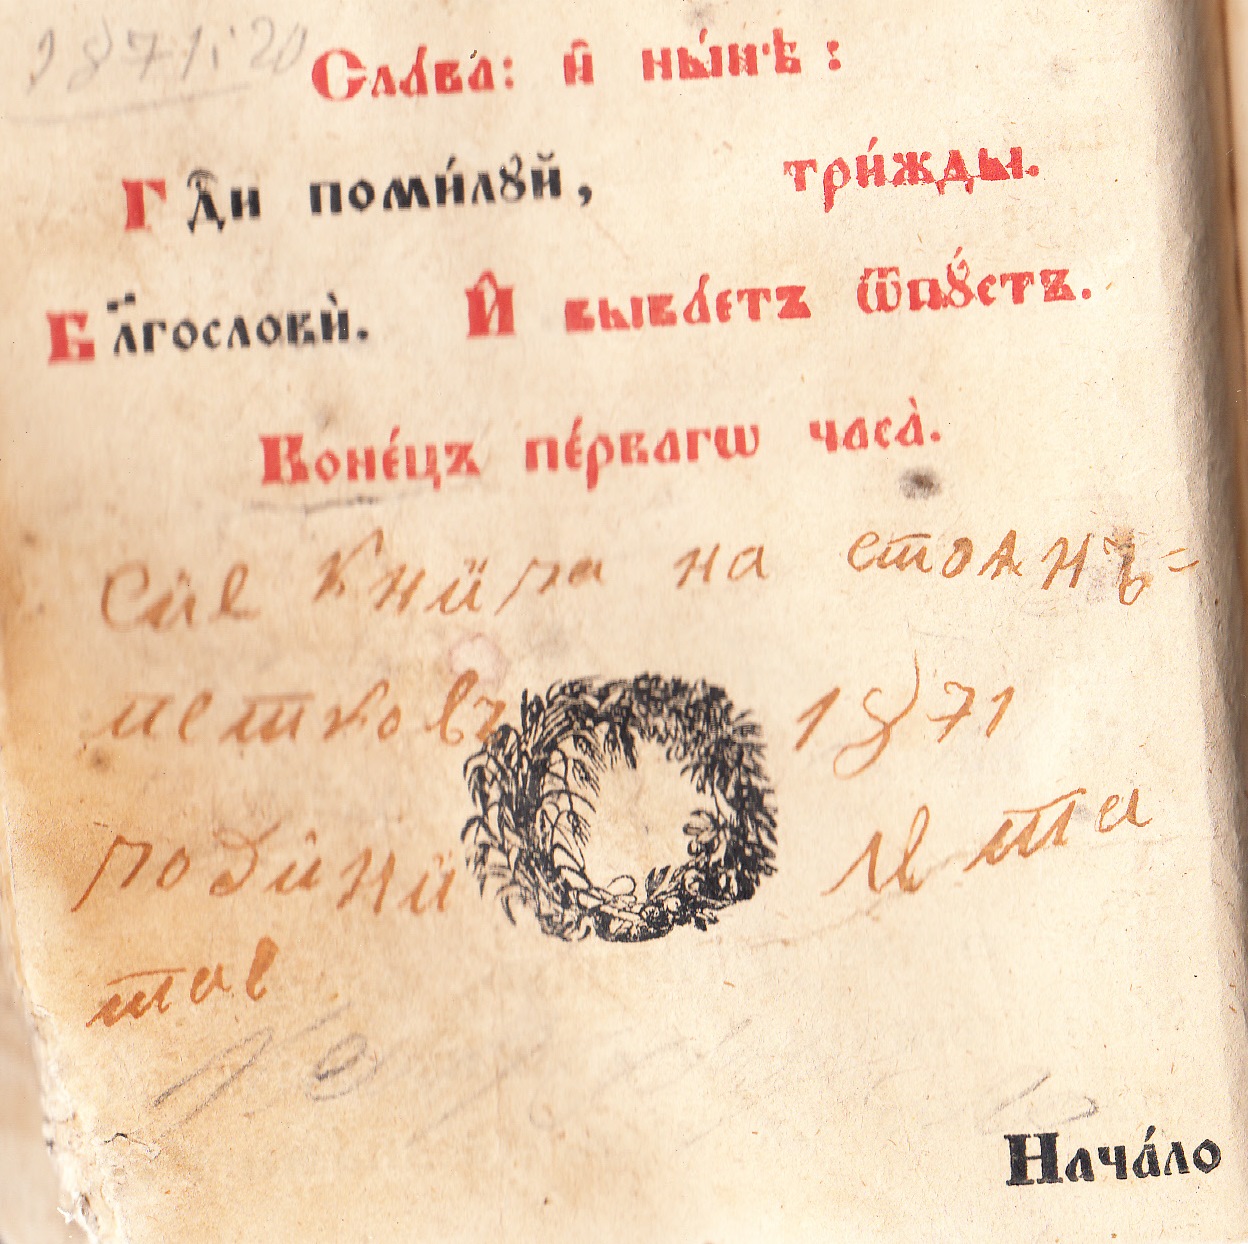 1871: 20
Сла́ва: и҆ ны́нѣ:
Гдⷭ҇и поми́лꙋй, три́жды.
Бл҃гословѝ. И҆ быва́етъ ѿпꙋ́стъ.
Коне́цъ пе́рвагѡ часа̀.
Сие книга на стоанъ=
петковъ 1871
година лета
тов
Нача́ло